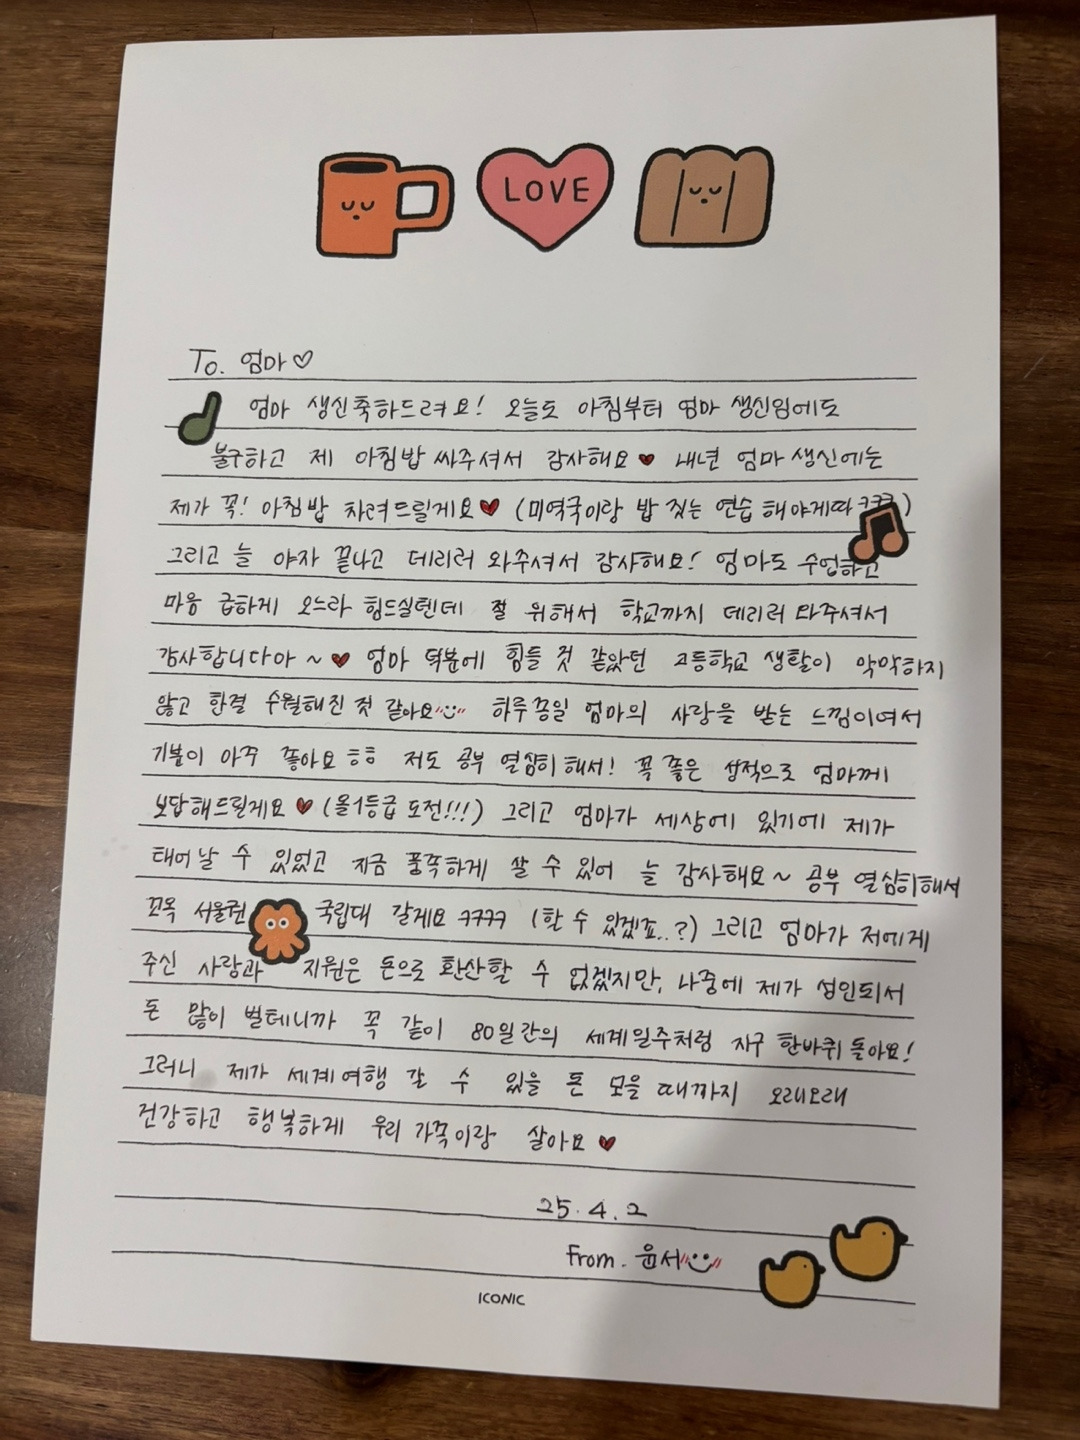 LOVE
To. 엄마♡
엄마 생신축하드려요! 오늘도 아침부터 엄마 생신임에도
불구하고 제 아침밥 싸주셔서 감사해요♥ 내년 엄마 생신에는
제가 꼭! 아침밥 차려드릴게요♥ (미역국이랑 밥 짓는 연습 해야게따 ㅋㅋㅋ)
그리고 늘 야자 끝나고 데리러 와주셔서 감사해요! 엄마도 수업하고
마음 급하게 오느라 힘드실텐데 절 위해서 학교까지 데리러 와주셔서
감사합니다아~♥ 엄마 덕분에 힘들 것 같았던 고등학교 생활이 막막하지
않고 한결 수월해진 것 같아요 하루종일 엄마의 사랑을 받는 느낌이여서
기분이 아주 좋아요 ㅎㅎ 저도 공부 열심히 해서! 꼭 좋은 성적으로 엄마께
보답해드릴게요♥ (올1등급 도전!!!) 그리고 엄마가 세상에 있기에 제가
태어날 수 있었고 지금 풍족하게 살 수 있어 늘 감사해요~ 공부 열심히해서
꼬옥 서울권 국립대 갈게요 ㅋㅋㅋㅋ (할 수 있겠죠..?) 그리고 엄마가 저에게
주신 사랑과 지원은 돈으로 환산할 수 없겠지만, 나중에 제가 성인되서
돈 많이 벌테니까 꼭 같이 80일간의 세계일주처럼 지구 한바퀴 돌아요!
그러니 제가 세계여행 갈 수 있을 돈 모을 때까지 오래오래
건강하고 행복하게 우리 가족이랑 살아요♥
25.4.2
From. 윤서
ICONIC